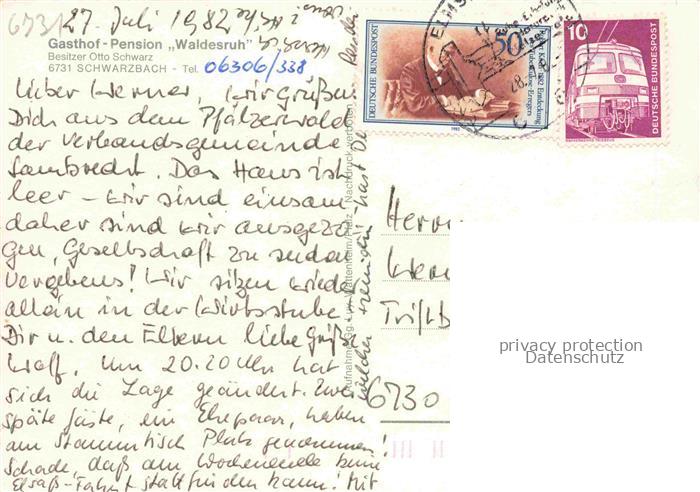 67317
27. Juli 1982
Gasthof - Pension „Waldesruh"
Besitzer Otto Schwarz
6731 SCHWARZBACH - Tel. 06306/338
Lieber Werner, wir grüßen
Dich aus dem Pfälzerwald
der Verbandsgemeinde
Lambrecht. Das Haus ist
leer - wir sind einsam
daher sind wir ausgezo
gen, Gesellschaft zu suchen
vergebens! Wir sitzen wieder
allein in der Wirtsstube
Dir u. den Eltern liebe Grüße
Um 20.20 Uhr hat
sich die Lage geändert. Zwei
späte Gäste, ein Ehepaar, haben
am Stammtisch Platz genommen!
Schade, daß am Wochenende keine
Elsaß-Fahrt stattfinden kann! Mit
welcher hast Du
Nachdruck verboten
DEUTSCHE BUNDESPOST
50
1882 Entdeckung
des Tuberkulose-Erregers
1982
28.
10
DEUTSCHE BUNDESPOST
Herrn
Wern
6730
privacy protection
Datenschutz